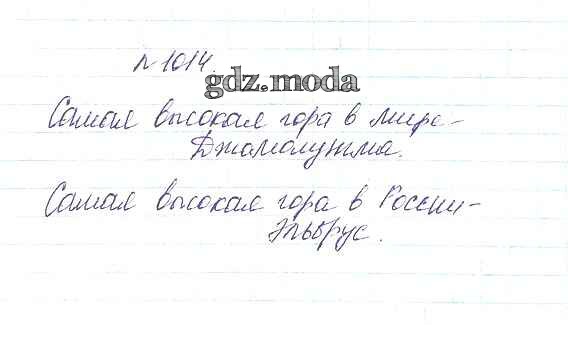 № 1014.
gdz.moda
Самая высокая гора в мире-
Джомолунгма.
Самая высокая гора в России-
Эльбрус.